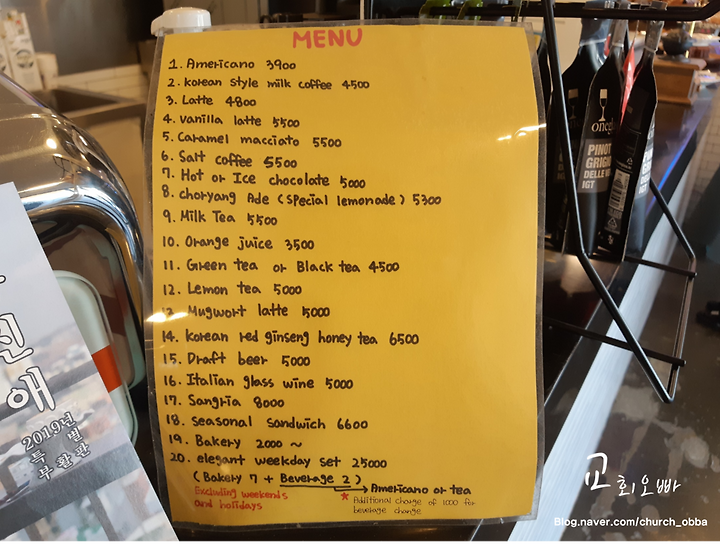 MENU
1. Americano 3900
2. Korean style milk coffee 4500
3. Latte 4800
4. Vanilla latte 5500
5. Caramel macciato 5500
6. Salt coffee 5500
7. Hot or Ice chocolate 5000
8. choryang Ade (special lemonade) 5300
9. Milk Tea 5500
10. Orange juice 3500
11. Green tea or Black tea 4500
12. Lemon tea 5000
13. Mugwort latte 5000
14. Korean red ginseng honey tea 6500
15. Draft beer 5000
16. Italian glass wine 5000
17. Sangria 8000
18. Seasonal sandwich 6600
19. Bakery 2000 ~
20. elegant weekday set 25000
(Bakery 7 + Beverage 2) → Americano or tea
Excluding weekends
and holidays
* Additional charge of 1000 for
beverage change
애
2019년
특별
부활판
PINOT
GRIGIO
DELLE
IGT
교회오빠
Blog.naver.com/church_obba